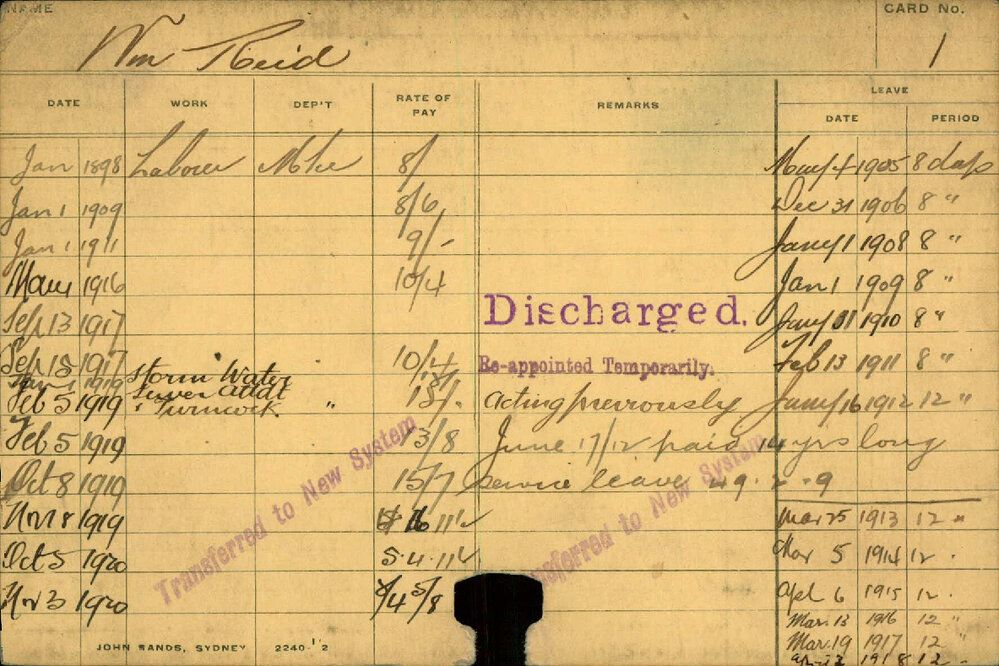 NAME
Wm Reid
CARD No.
1
DATE WORK DEP'T RATE OF PAY REMARKS LEAVE
DATE PERIOD
Jan 1898 Laborer Mtce 8/ May 4 1905 8 days
Jan 1 1909 8/6 Dec 31 1906 8 "
Jan 1 1911 9/- Jany 1 1908 8 "
May 1 1916 10/4 Jan 1 1909 8 "
Sep 13 1917 Discharged. Jany 31 1910 8 "
Sep 18 1917 10/4 Re-appointed Temporarily. Feb 13 1911 8 "
1919 Storm Water
Feb 5 1919 Sewer Attdt 13/. acting previously Jany 16 1912 12 "
" Turncock "
Feb 5 1919 13/8 June 17/12 paid 14 yrs long
Oct 8 1919 15/7 service leave 49.2.9
Nov 8 1919 16 11½ Mar 25 1913 12 "
Oct 5 1920 5.4.11½ Mar 5 1914 12 .
Nov 3 1920 4 5/8 Apl 6 1915 12 .
Mar. 13 1916 12 "
Mar. 19 1917 12 "
1918 12
Transferred to New System
Transferred to New System
JOHN SANDS, SYDNEY 2240-12